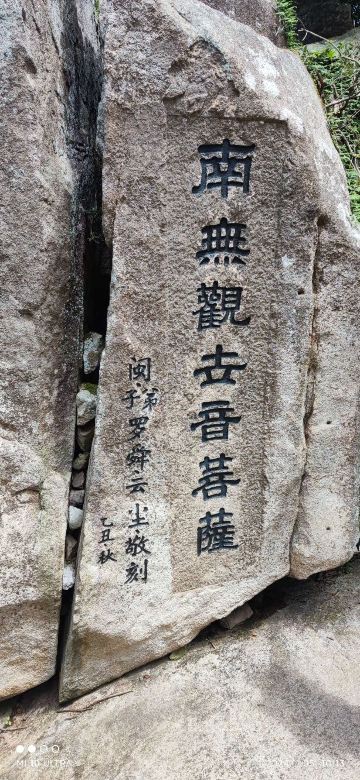 南無觀世音菩薩
闽弟子罗舜云尘敬刻
乙丑秋
MI 10 ULTRA